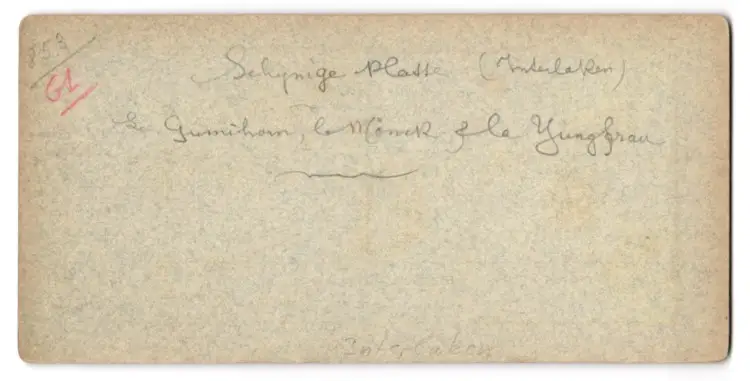 853
61
Schynige Platte (Interlaken)
Le Gumihorn, le Mönck & la Yungfrau
Interlaken